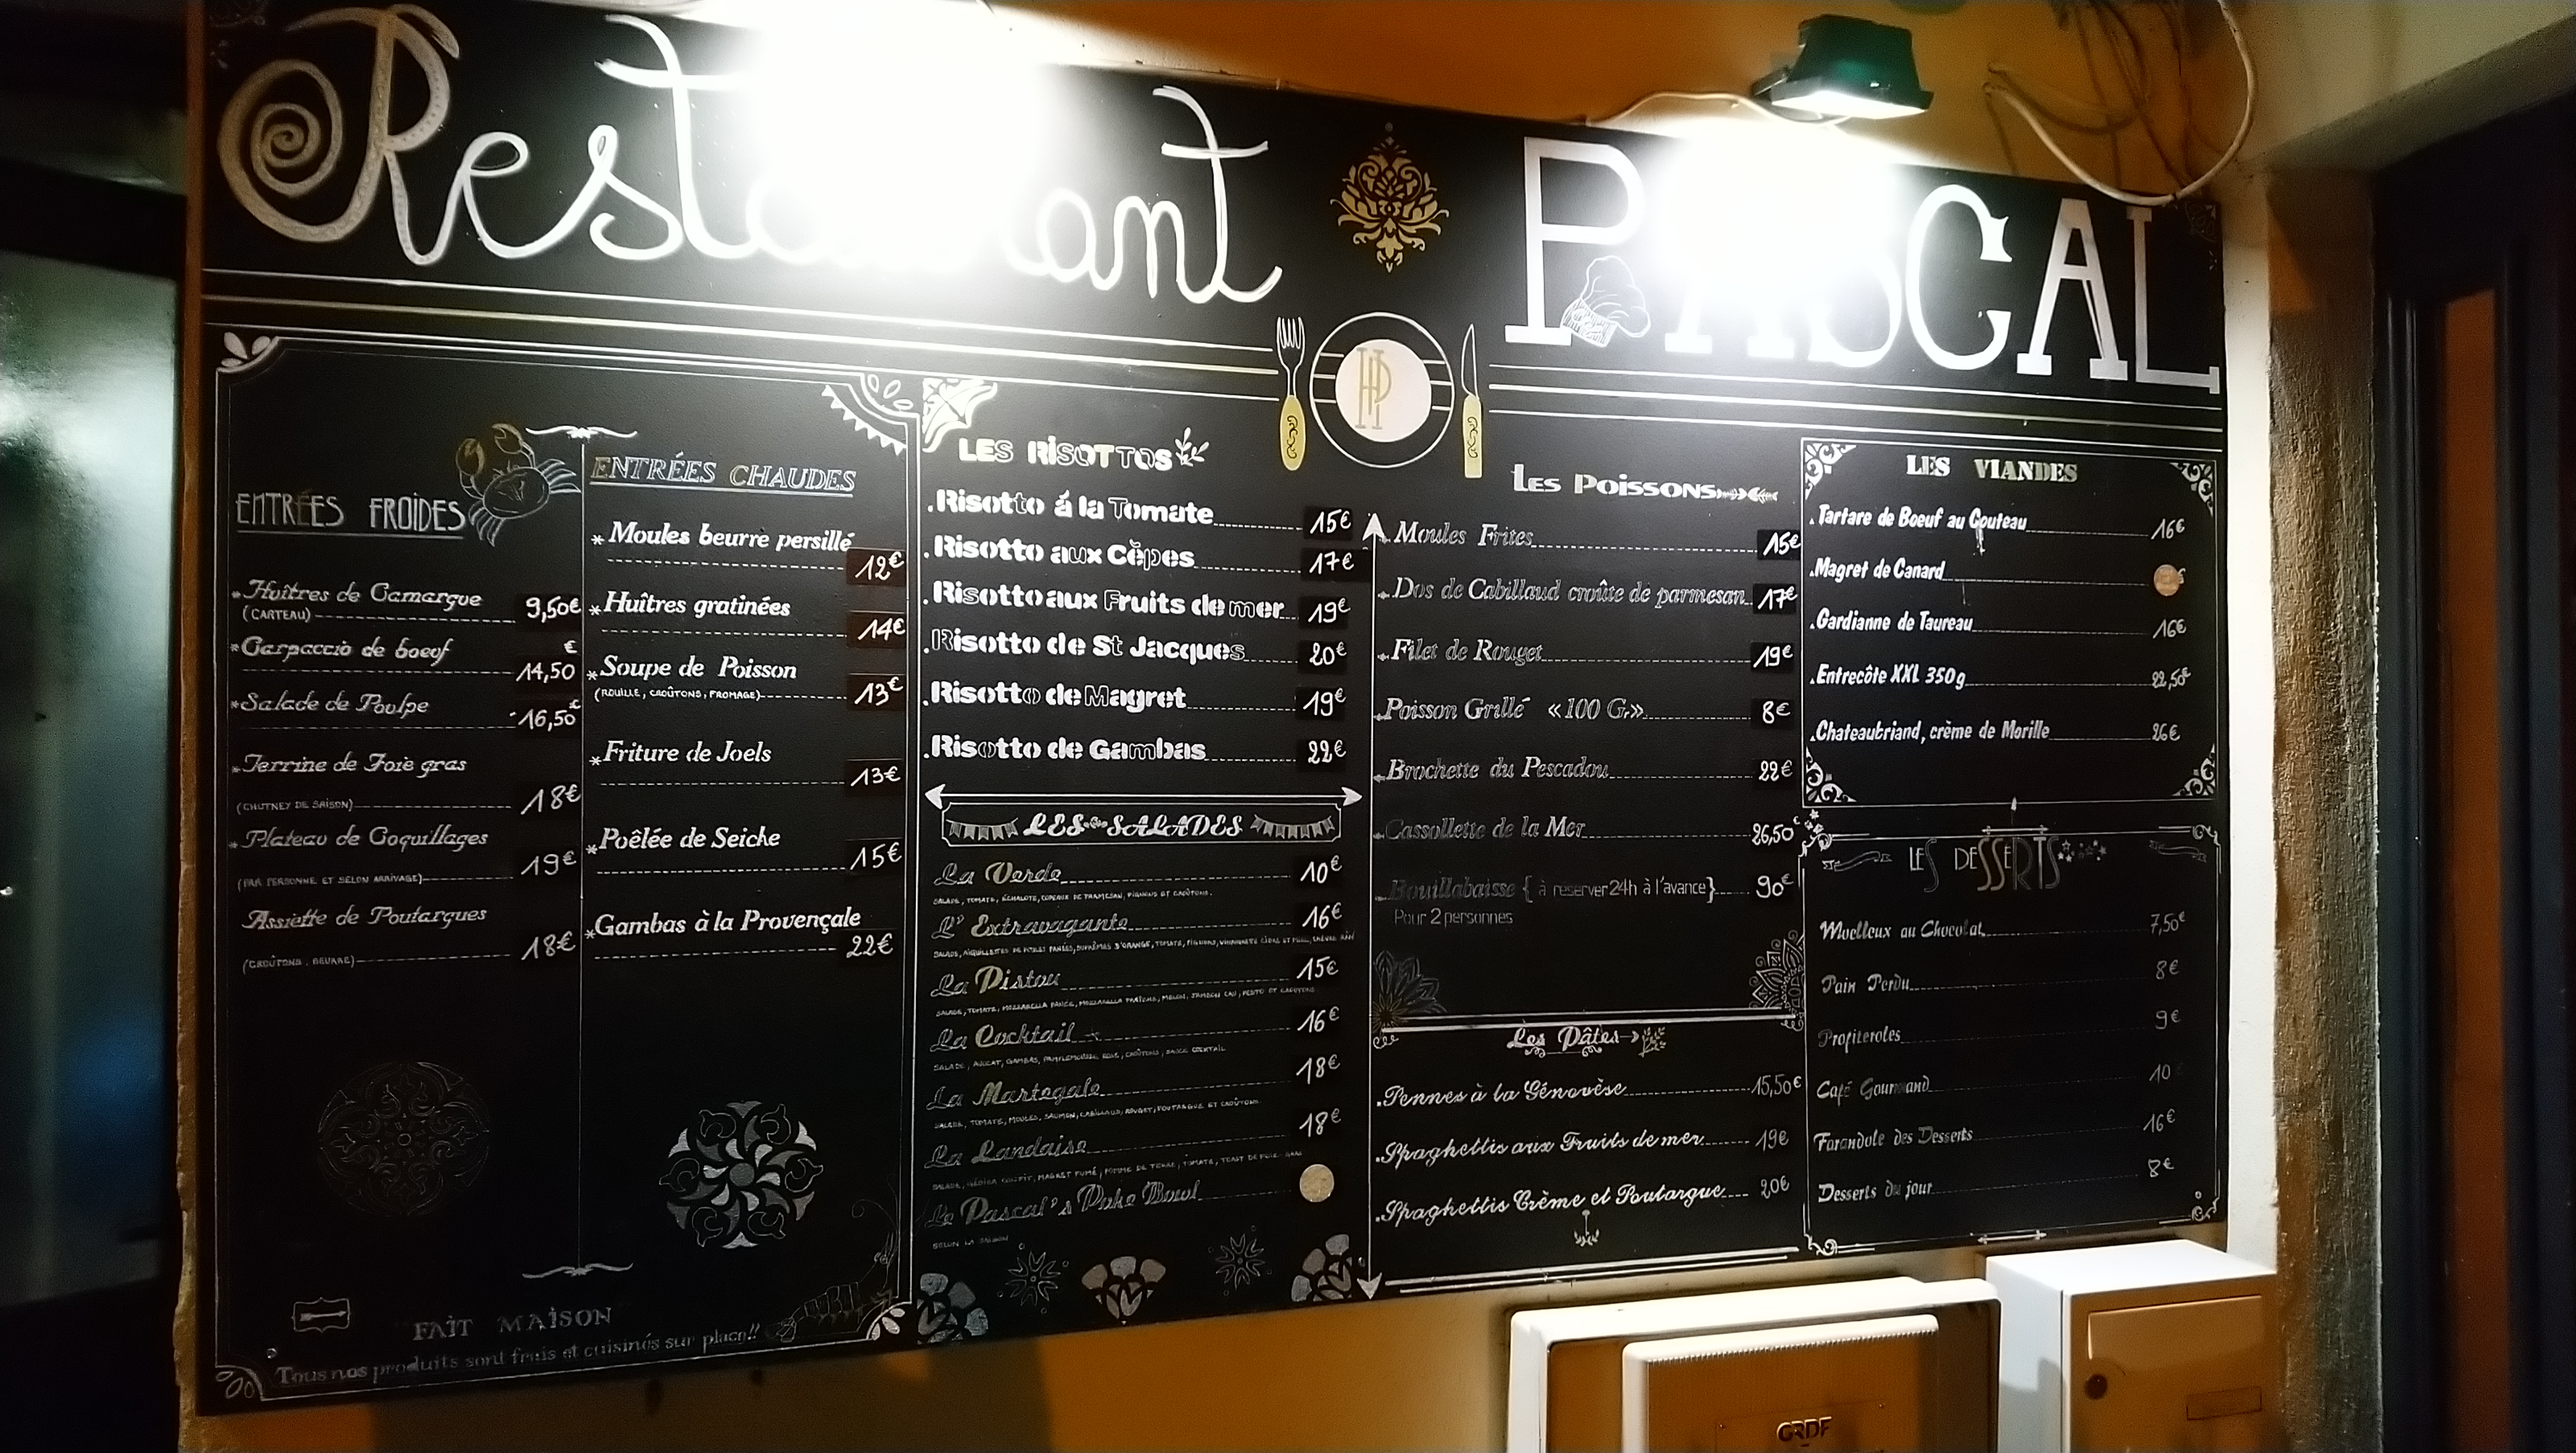 Restaurant PASCAL
HP
ENTRÉES FROIDES
*Huîtres de Camargue
(CARTEAU) 9,50€
*Carpaccio de boeuf
14,50 €
*Salade de Poulpe
16,50€
*Terrine de Foie gras
(CHUTNEY DE SAISON) 18€
*Plateau de Coquillages
(PAR PERSONNE ET SELON ARRIVAGE) 19€
Assiette de Poutargues
(CROÛTONS, BEURRE) 18€
ENTRÉES CHAUDES
*Moules beurre persillé
12€
*Huîtres gratinées
14€
*Soupe de Poisson
(ROUILLE, CROÛTONS, FROMAGE) 13€
*Friture de Joels
13€
*Poêlée de Seiche
15€
*Gambas à la Provençale
22€
FAIT MAISON
Tous nos produits sont frais et cuisinés sur place!!
LES RISOTTOS
.Risotto á la Tomate 15€
.Risotto aux Cèpes 17€
.Risotto aux Fruits de mer 19€
.Risotto de St Jacques 20€
.Risotto de Magret 19€
.Risotto de Gambas 22€
LES SALADES
La Verde 10€
SALADE, TOMATE, ÉCHALOTE, COPEAUX DE PARMESAN, PIGNONS ET CROÛTONS.
L'Extravagante 16€
La Pistou 15€
SALADE, TOMATE, MOZZARELLA PANÉE, MOZZARELLA FRAÎCHE, MELON, JAMBON CRU, PESTO ET CROÛTONS
La Cocktail 16€
SALADE, AVOCAT, GAMBAS, PAMPLEMOUSSE ROSE, CROÛTONS, SAUCE COCKTAIL
La Martegale 18€
SALADE, TOMATE, MOULES, SAUMON, CABILLAUD, ROUGET, POUTARGUE ET CROÛTONS
La Landaise 18€
SALADE, GÉSIER CONFIT, MAGRET FUMÉ, POMME DE TERRE, TOMATE, TOAST DE FOIE GRAS
Le Pascal's Poke Bowl
SELON LA SAISON
LES POISSONS
Moules Frites 15€
Dos de Cabillaud croûte de parmesan 17€
Filet de Rouget 19€
Poisson Grillé «100 Gr» 8€
Brochette du Pescadou 22€
Cassollette de la Mer 26,50€
Bouillabaisse { à reserver 24h à l'avance} 90€
Pour 2 personnes
Les Pâtes
.Pennes à la Génovèse 15,50€
.Spaghettis aux Fruits de mer 19€
.Spaghettis Crème et Poutargue 20€
LES VIANDES
.Tartare de Boeuf au Couteau 16€
.Magret de Canard
.Gardianne de Taureau 16€
.Entrecôte XXL 350g 22,50€
.Chateaubriand, crème de Morille 26€
LES DESSERTS
Moelleux au Chocolat 7,50€
Pain Perdu 8€
Profiteroles 9€
Café Gourmand 10
Farandole des Desserts 16€
Desserts du jour 8€
GRDF